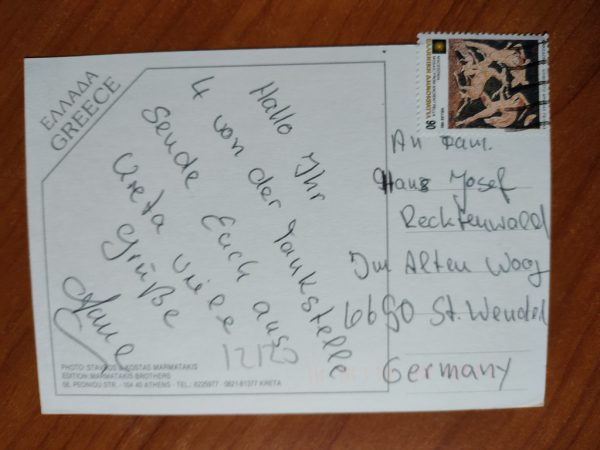 ΕΛΛΑΔΑ
GREECE
Hallo Ihr
4 von der Tankstelle
Sende Euch aus
Kreta viele
Grüße
12120
PHOTO: STAVROS & KOSTAS MARMATAKIS
EDITION: MARMATAKIS BROTHERS
58, PEONIOU STR. - 104 40 ATHENS - TEL.: 8225977 - 0821-61377 KRETA
ΕΛΛΗΝΙΚΗ ΔΗΜΟΚΡΑΤΙΑ
90
An Fam.
Hans Josef
Recktenwald
Im Alten Woog
6690 St. Wendel
Germany